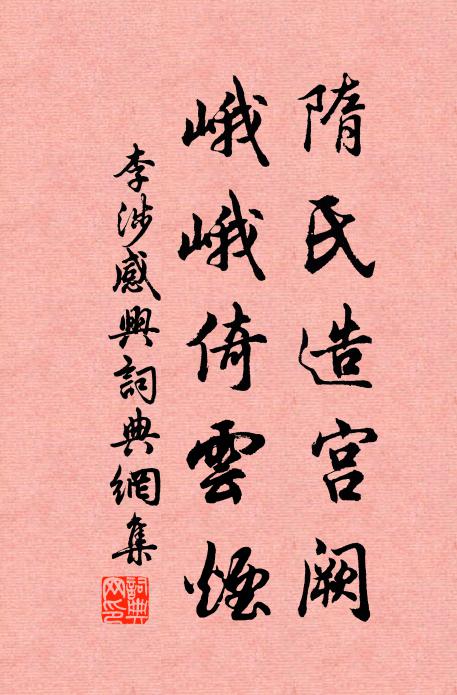 隋氏造宫阙
峨峨倚雲煙
李涉感興詞典網集
詞典
网印